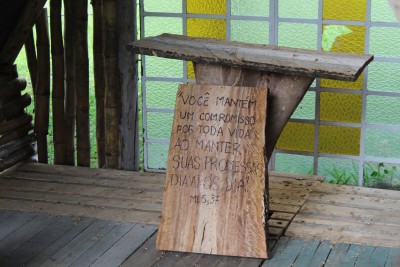 VOCÊ MANTÉM
UM COMPROMISSO
POR TODA VIDA
AO MANTER
SUAS PROMESSAS
DIA APÓS DIA